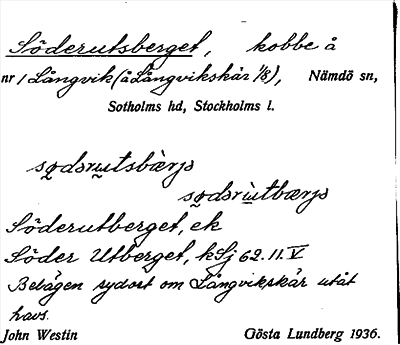 Söderutsberget, kobbe å
nr 1 Långvik (å Långvikskär 1/8), Nämdö sn,
Sotholms hd, Stockholms l.
Söderutberget, ek
Söder Utberget, kSj 62.11.V.
Belägen sydost om Långvikskär utåt
havs.
John Westin Gösta Lundberg 1936.